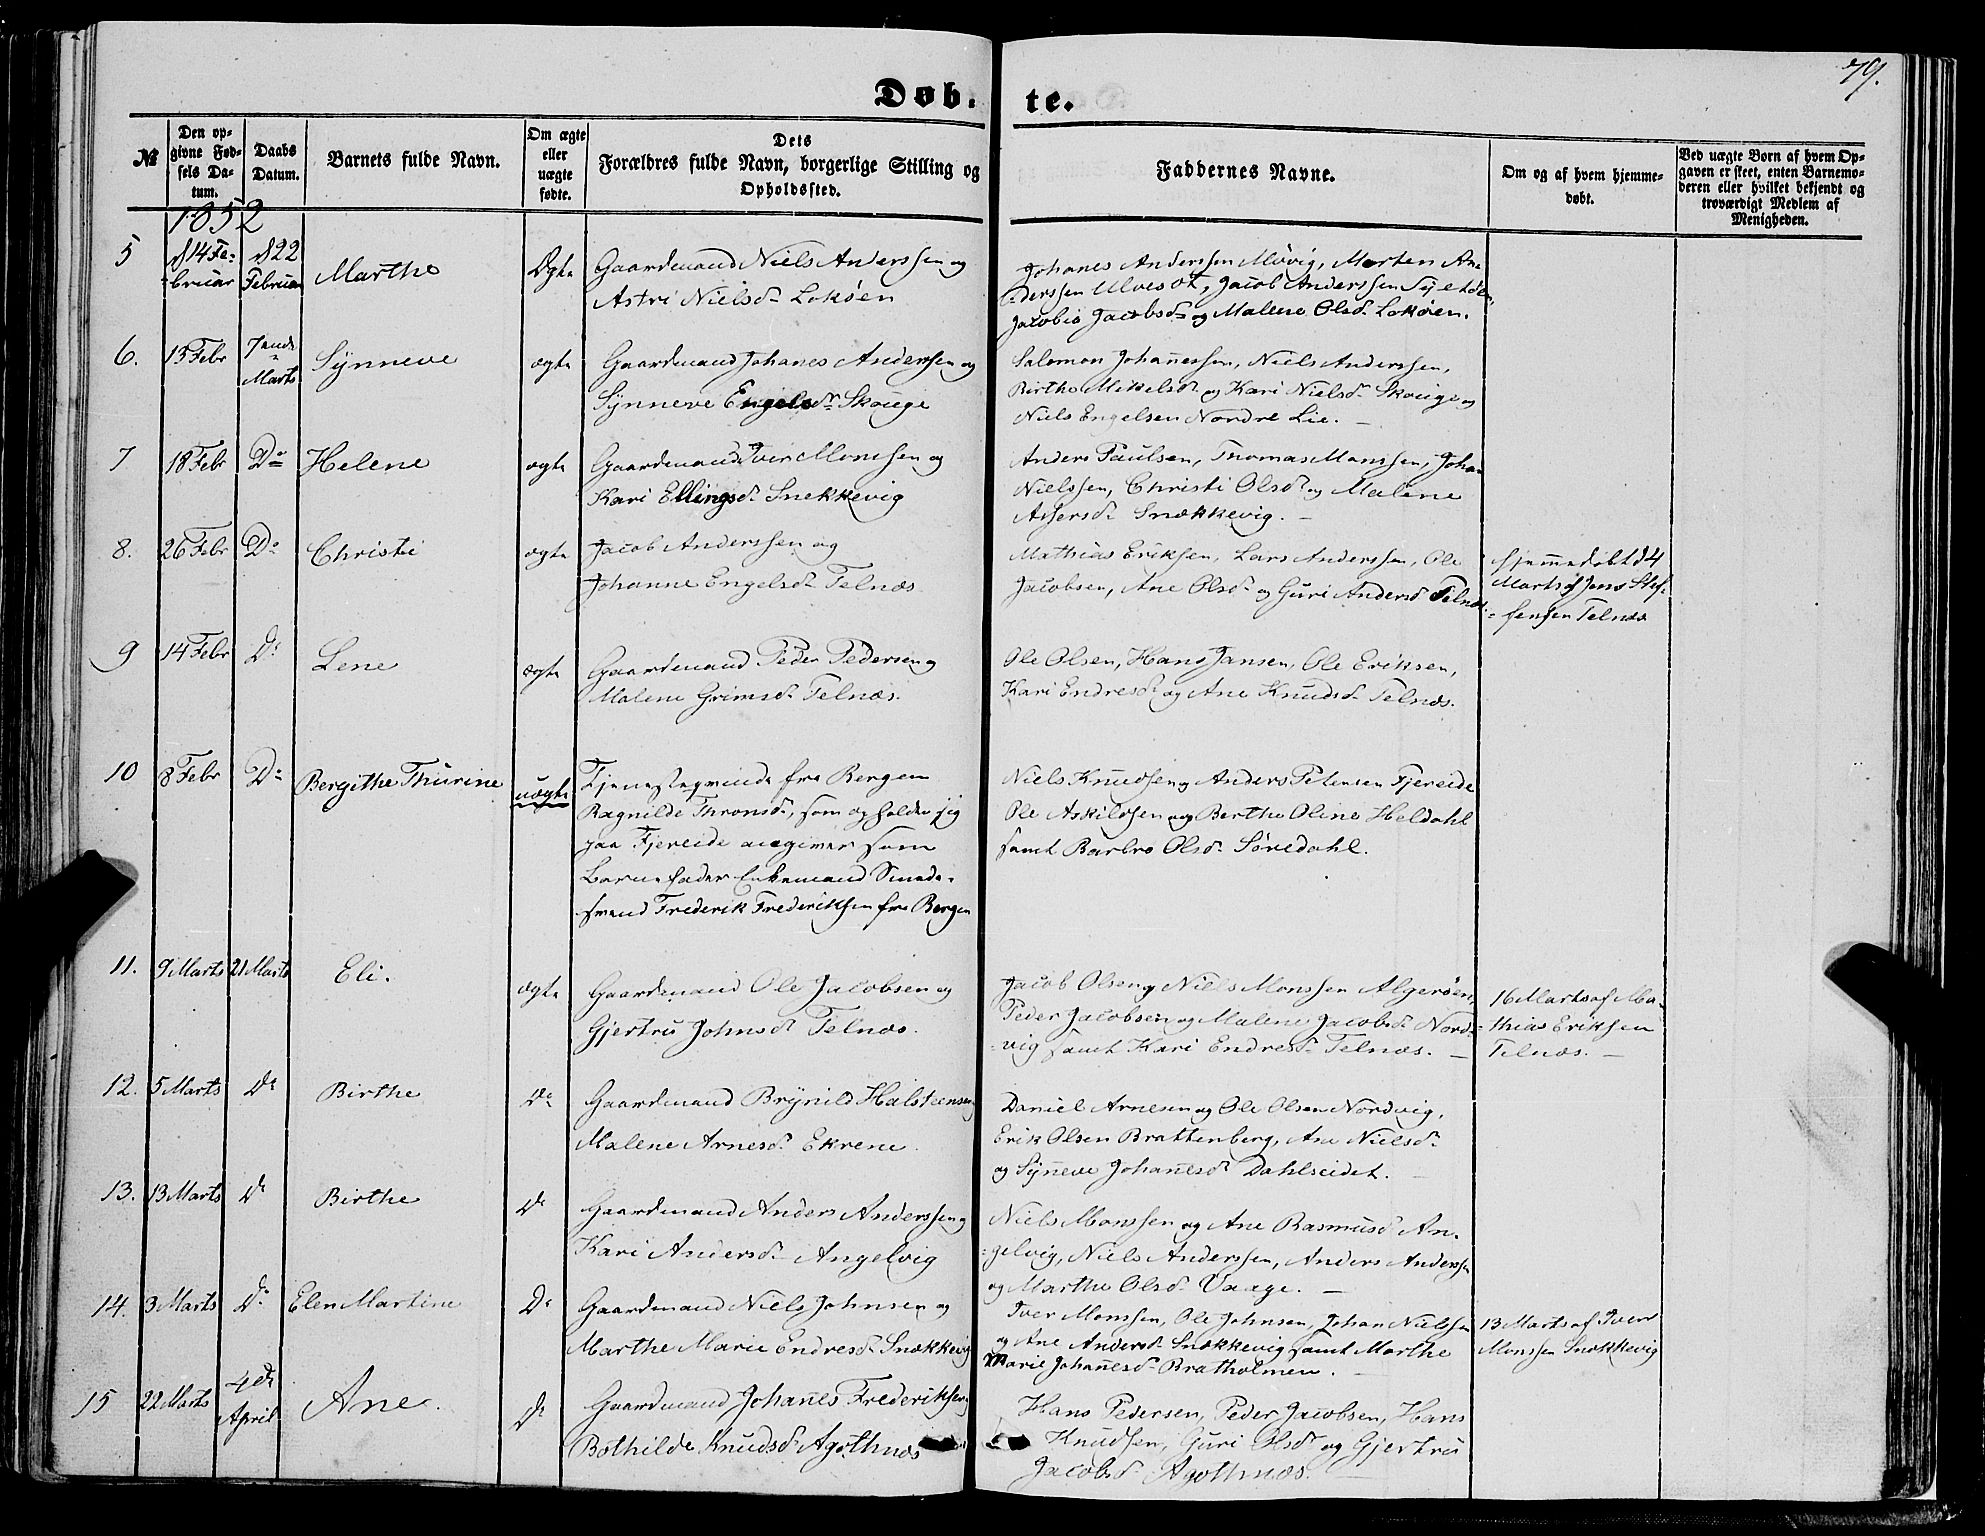 79.
Døb. te.
№
Den op-
givne Fød-
sels Da-
tum.
Daabs
Datum.
Barnets fulde Navn.
Om ægte
eller
uægte
fødte.
Dets
Forældres fulde Navn, borgerlige Stilling og
Opholdssted.
Faddernes Navne.
Om og af hvem hjemme-
døbt.
Ved uægte Børn af hvem Op-
gaven er skeet, enten Barnemo-
deren eller hvilket bekjendt og
troværdigt Medlem af
Menigheden.
1852
5
d 14 Fe-
-bruar
d 22
Februar
Marthe
Ægte
Gaardmand Niels Anderssen og
Astri Nielsd. Lokøen
Johanes Anderssen Møvig, Morten An-
-derssen Ulveset, Jacob Anderssen
Jacobia Jacobsd. og Malene Olsd. Lokøen.
6.
13 Febr
7ende
Marts
Synneve
ægte
Gaardmand Johanes Anderssen og
Synneve Engelsd. Skouge
Salomon Johanessen, Niels Anderssen,
Birthe Mikelsd. og Kari Nielsd. Skouge og
Niels Engelsen Nordre Lie. —
7
18 Febr
Do
Helene
ægte
Gaardmand Iver Monsen og
Kari Ellingsd. Snekkevig
Anders Paulsen, Thomas Monssen, Johan
Nielssen, Christi Olsd. og Malene
Assersd. Snækkevig. —
8.
26 Febr
Do
Christi
ægte
Jacob Anderssen og
Johanne Engelsd. Telnæs
Mathias Eriksen, Lars Anderssen, Ole
Jacobsen, Ane Olsd. og Guri Andersd Telnæs.
hjemmedøbt d 4
Marts af Jens Stef-
-fensen Telnæs
9
14 Febr
Do
Lene
ægte
Gaardmand Peder Pedersen og
Malene Grimsd. Telnæs.
Ole Olsen, Hans Jansen, Ole Eriksen,
Kari Endresd. og Ane Knudsd. Telnæs.
10
8 Febr
Do
Bergithe Thurine
uægte
Tjenestepvinde fra Bergen
Ragnilde Thronsd., som opholder sig
paa Fjereide angiver som
Barnefader Enkemand Smede-
svend Frederik Frederiksen fra Bergen
Niels Knudsen og Anders Petersen Fjereide
Ole Askildsen og Berthe Oline Heldahl
samt Barbro Olsd. Søredahl.
11.
9 Marts
21 Marts
Eli.
ægte
Gaardmand Ole Jacobsen og
Gjertru Johnsd. Telnæs.
Jacob Olsen og Niels Monssen Algerøen,
Peder Jacobsen og Malene Jacobsd. Nord-
-vig samt Kari Endresd. Telnæs. —
16 Marts af Ma-
-thias Eriksen
Telnæs. —
12.
5 Marts
Do
Birthe
Do
Gaardmand Brynild Halsteensen
Malene Arnesd. Ekrene.
Daniel Arnesen og Ole Olsen Nordvig,
Erik Olsen Brattenberg, Ane Nielsd.
og Synneve Johanesd. Dahlseidet. —
13.
13 Marts
Do
Birthe
Do
Gaardmand Anders Anderssen og
Kari Andersd. Angelvig
Niels Monssen og Ane Rasmusd. An-
-gelvig, Niels Anderssen, Anders Anderssen
og Marthe Olsd. Vaage. —
14.
3 Marts
Do
Elen Martine
Do
Gaardmand Niels Johnsen og
Marthe Marie Endresd. Snækkevig
Iver Monssen, Ole Johnsen, Johan Nielssen
og Ane Andersd. Snækkevig samt Marthe
Marie Johanesd. Bratholmen. —
13 Marts af Iver
Monssen Snækkevig
15
22 Marts
4de
April
Ane.
Do
Gaardmand Johanes Frederiksen og
Bothilde Knudsd. Agothnæs
Hans Pedersen, Peder Jacobsen, Hans
Knudsen, Guri Olsd. og Gjertru
Jacobsd. Agothnæs. —